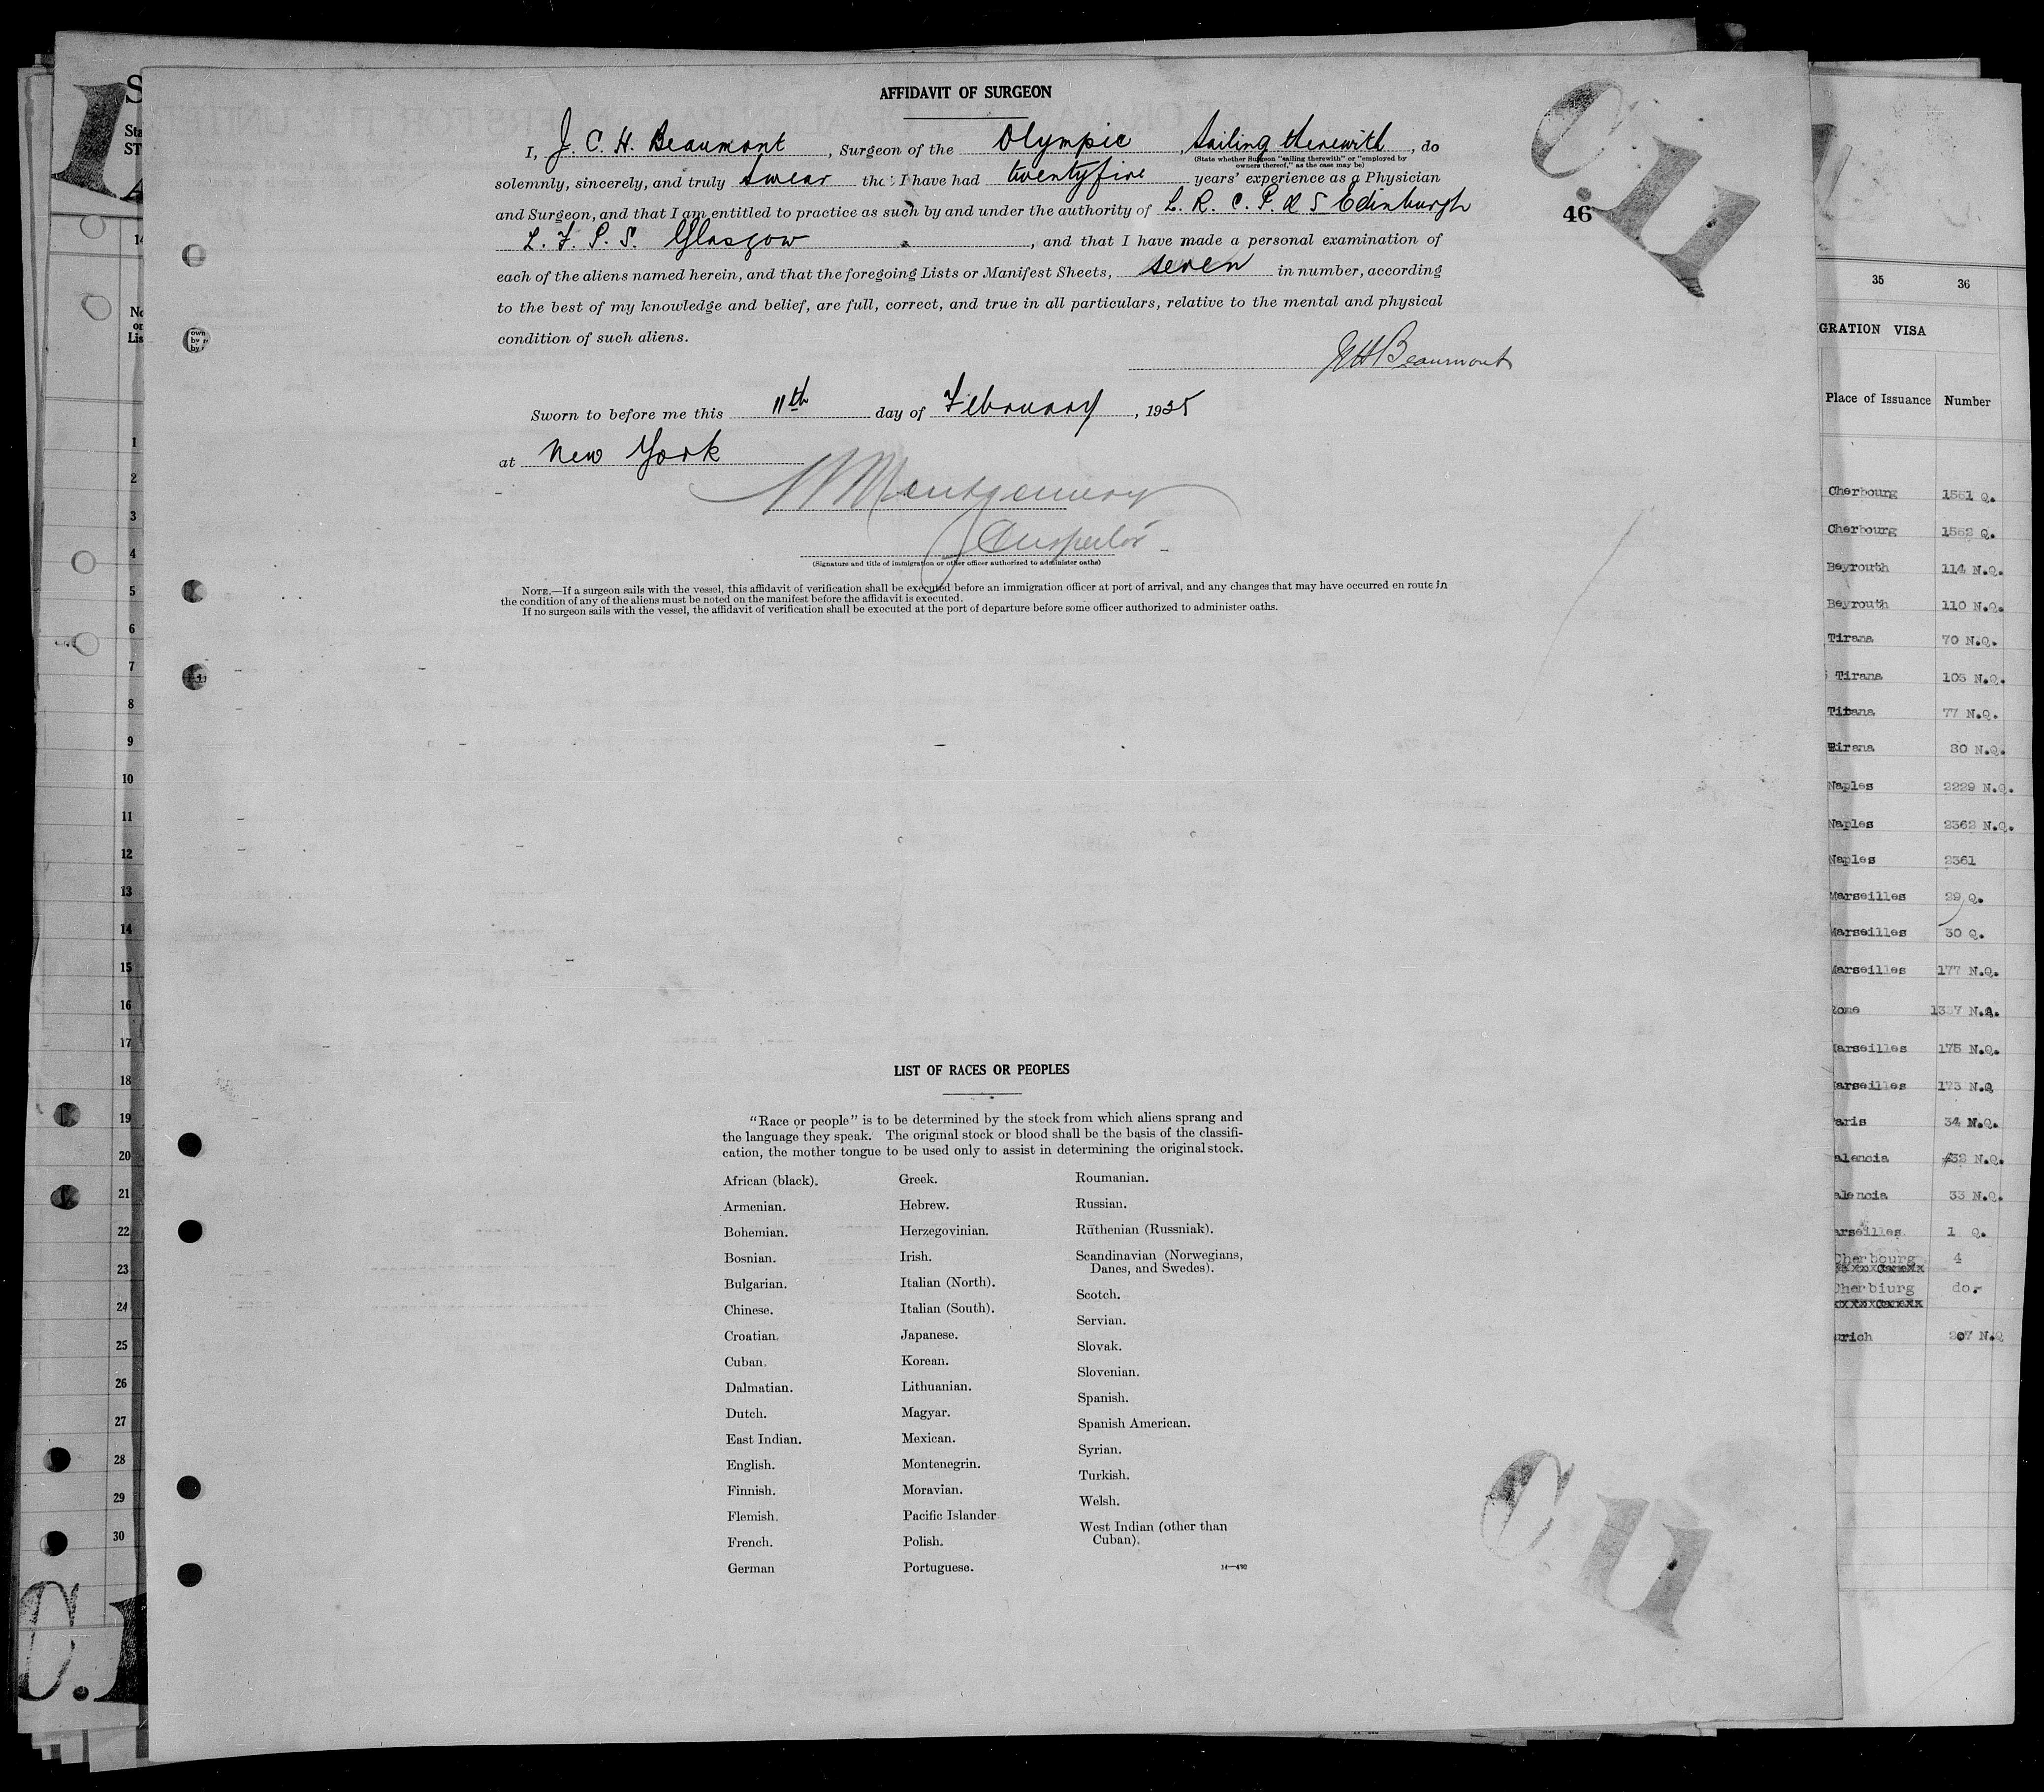 AFFIDAVIT OF SURGEON
I, J. C. H. Beaumont, Surgeon of the Olympic, sailing therewith, do
(State whether Surgeon "sailing therewith" or "employed by
owners thereof," as the case may be)
solemnly, sincerely, and truly swear that I have had twentyfive years' experience as a Physician
and Surgeon, and that I am entitled to practice as such by and under the authority of L. R. C. P. & S Edinburgh
L. F. P. S. Glasgow, and that I have made a personal examination of
46
each of the aliens named herein, and that the foregoing Lists or Manifest Sheets, seven in number, according
to the best of my knowledge and belief, are full, correct, and true in all particulars, relative to the mental and physical
condition of such aliens.
JCHBeaumont
Sworn to before me this 11th day of February, 1935
at New York
Montgomery
Inspector
(Signature and title of immigration or other officer authorized to administer oaths)
NOTE.—If a surgeon sails with the vessel, this affidavit of verification shall be executed before an immigration officer at port of arrival, and any changes that may have occurred en route in
the condition of any of the aliens must be noted on the manifest before the affidavit is executed.
If no surgeon sails with the vessel, the affidavit of verification shall be executed at the port of departure before some officer authorized to administer oaths.
LIST OF RACES OR PEOPLES
"Race or people" is to be determined by the stock from which aliens sprang and
the language they speak. The original stock or blood shall be the basis of the classifi-
cation, the mother tongue to be used only to assist in determining the original stock.
African (black).
Armenian.
Bohemian.
Bosnian.
Bulgarian.
Chinese.
Croatian.
Cuban.
Dalmatian.
Dutch.
East Indian.
English.
Finnish.
Flemish.
French.
German
Greek.
Hebrew.
Herzegovinian.
Irish.
Italian (North).
Italian (South).
Japanese.
Korean.
Lithuanian.
Magyar.
Mexican.
Montenegrin.
Moravian.
Pacific Islander
Polish.
Portuguese.
Roumanian.
Russian.
Ruthenian (Russniak).
Scandinavian (Norwegians,
Danes, and Swedes).
Scotch.
Servian.
Slovak.
Slovenian.
Spanish.
Spanish American.
Syrian.
Turkish.
Welsh.
West Indian (other than
Cuban).
C.U
C U
1
2
3
4
5
6
7
8
9
10
11
12
13
14
15
16
17
18
19
20
21
22
23
24
25
26
27
28
29
30
35 36
GRATION VISA
Place of Issuance Number
Cherbourg 1551 Q.
Cherbourg 1552 Q.
Beyrouth 114 N.Q.
Beyrouth 110 N.Q.
Tirana 70 N.Q.
Tirana 103 N.Q.
Titana 77 N.Q.
Tirana 80 N.Q.
Naples 2229 N.Q.
Naples 2362 N.Q.
Naples 2361
Marseilles 29 Q.
Marseilles 30 Q.
Marseilles 177 N.Q.
Rome 1337 N.Q.
arseilles 175 N.Q.
arseilles 173 N.Q
aris 34 N.Q.
alencia 32 N.Q.
alencia 33 N.Q.
arseilles 1 Q.
Cherbourg 4
Cherbiurg do.
urich 207 N.Q